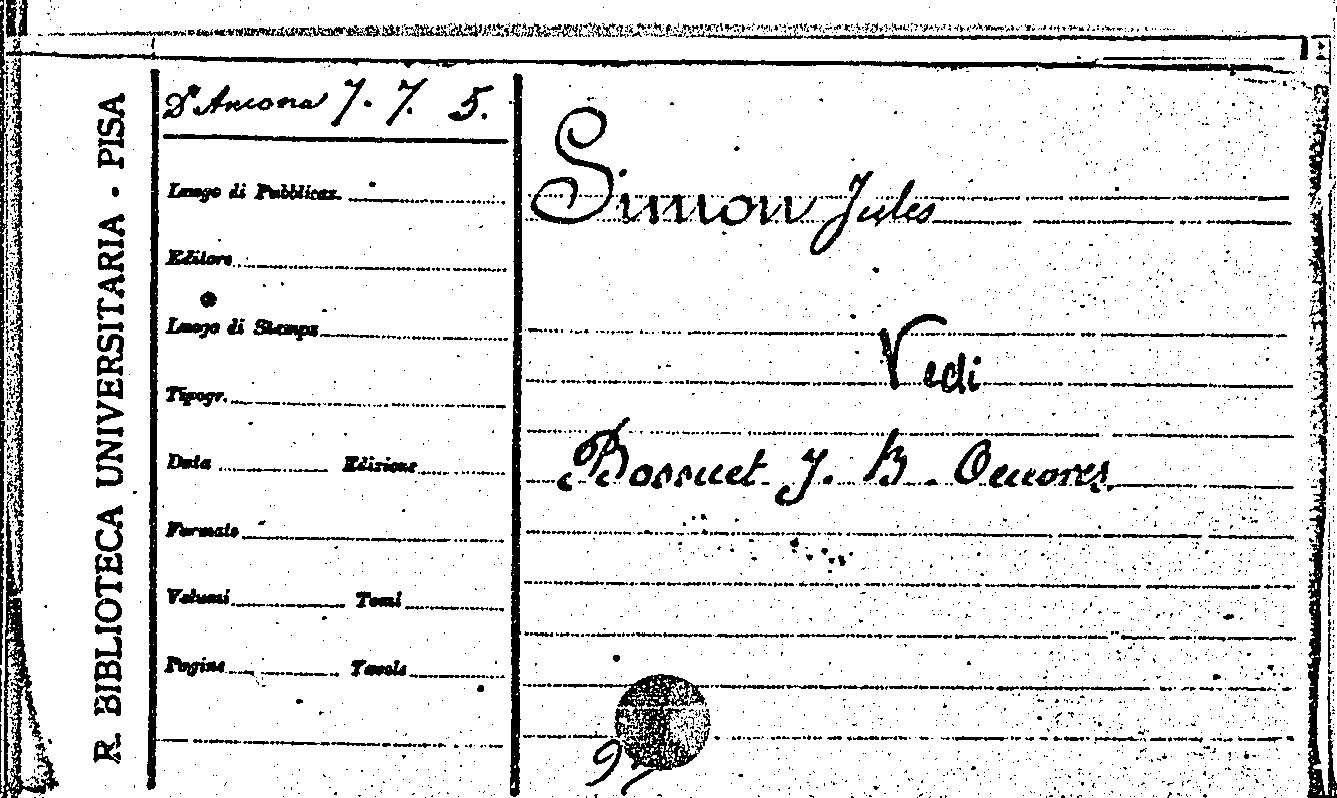 R. BIBLIOTECA UNIVERSITARIA - PISA
D'Ancona 7. 7. 5.
Luogo di Pubblicaz.
Editore
Luogo di Stampa
Tipogr.
Data Edizione
Formato
Volumi Tomi
Pagine Tavole
Simon Jules
Vedi
Bossuet J. B. Oeuvres.